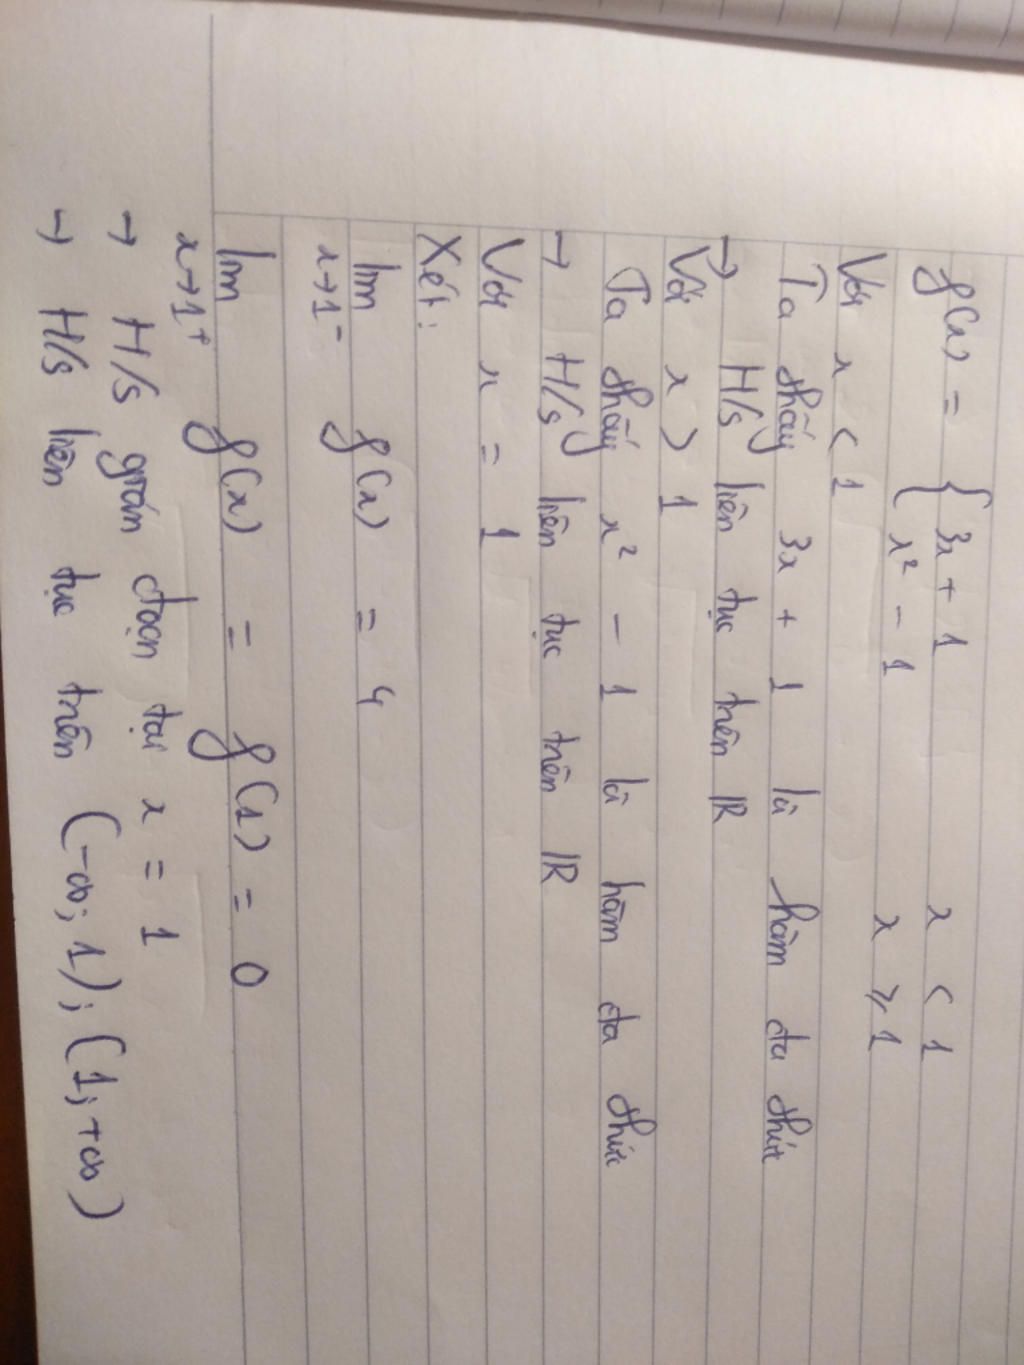 f(x) = { 3x + 1 x < 1
{ x² - 1 x ≥ 1
Với x < 1
Ta thấy 3x + 1 là hàm đa thức
→ H/s liên tục trên ℝ
Với x > 1
Ta thấy x² - 1 là hàm đa thức
→ H/s liên tục trên ℝ
Với x = 1
Xét:
lim f(x) = 4
x→1⁻
lim f(x) = f(1) = 0
x→1⁺
→ H/s gián đoạn tại x = 1
→ H/s liên tục trên (-∞; 1); (1; +∞)